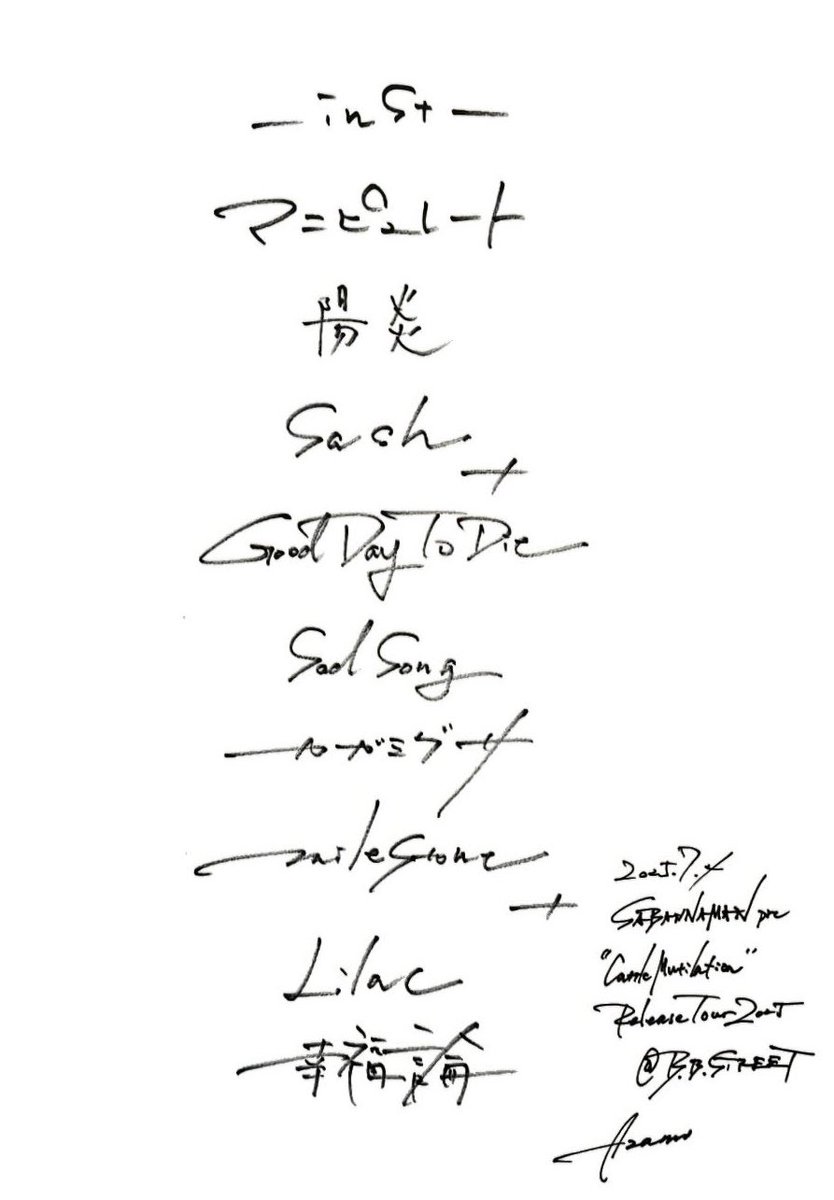 — inst —
マニピュレート
陽炎
Sach
+
Good Day To Die
Sad Song
Smile Gone
+
Lilac
幸福論
2025.7.4
SABANNAMAN pre
"Castle Mutilation"
Release Tour 2025
@B.B.STREET